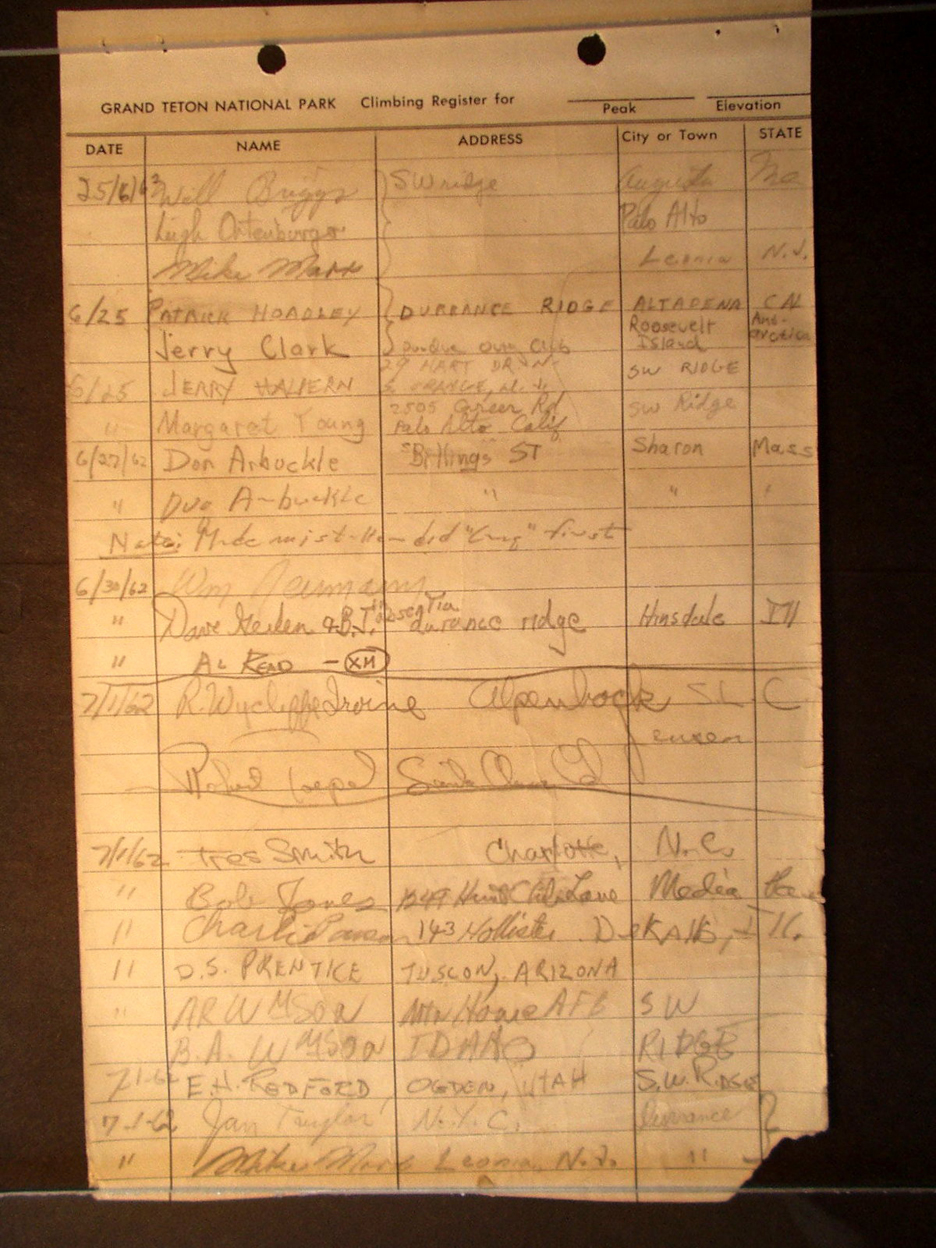 GRAND TETON NATIONAL PARK Climbing Register for
Peak Elevation
DATE NAME ADDRESS City or Town STATE
25/6/62 Will Briggs SW ridge Augusta Me
Leigh Ortenburger Palo Alto
Mike Marx Leonia N.J.
6/25 PATRICK HOADLEY DURRANCE RIDGE ALTADENA CAL
Jerry Clark Purdue Club Roosevelt Island Antarctica
6/25 JERRY HALPERN 29 HART DR N SW RIDGE
S ORANGE, N.J.
" Margaret Young 2505 Greer Rd SW Ridge
Palo Alto Calif
6/27/62 Don Arbuckle Billings ST Sharon Mass
" Arbuckle " " "
Note: did first
6/30/62 Wm Neumann
" Dave & B.J. "in absentia" durance ridge Hinsdale Ill
" AL READ - XM
7/1/62 R. Wycliffe Irvine Alpenbock SLC
Jensen
Robert Santa
7/1/62 Tres Smith Charlotte, N.C.
" Bob Jones 1249 Lane Media Pa
" Charlie 143 Hollister DeKalb, Ill.
" D.S. PRENTICE TUSCON, ARIZONA
" AR WMSON Mtn Home AFB SW
B.A. WMSON IDAHO RIDGE
7-1-62 E.H. REDFORD OGDEN, UTAH S.W. RIDGE
7-1-62 Jan Taylor N.Y.C. Durrance
" Mike Marx Leonia, N.J. "